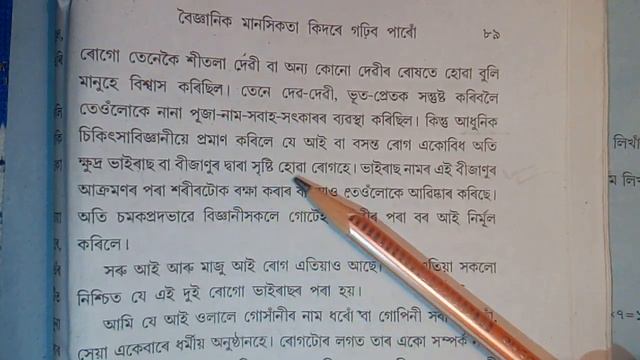 বৈজ্ঞানিক মানসিকতা কিদৰে গঢ়িব পাৰোঁ ৮৯
ৰোগো তেনেকৈ শীতলা দেৱী বা অন্য কোনো দেৱীৰ ৰোষতে হোৱা বুলি
মানুহে বিশ্বাস কৰিছিল। তেনে দেৱ-দেৱী, ভূত-প্ৰেতক সন্তুষ্ট কৰিবলৈ
তেওঁলোকে নানা পূজা-নাম-সবাহ-সৎকাৰৰ ব্যৱস্থা কৰিছিল। কিন্তু আধুনিক
চিকিৎসাবিজ্ঞানীয়ে প্ৰমাণ কৰিলে যে আই বা বসন্ত ৰোগ একোবিধ অতি
ক্ষুদ্ৰ ভাইৰাছ বা বীজাণুৰ দ্বাৰা সৃষ্টি হোৱা ৰোগহে। ভাইৰাছ নামৰ এই বীজাণুৰ
আক্ৰমণৰ পৰা শৰীৰটোক ৰক্ষা কৰাৰ তেওঁলোকে আৱিষ্কাৰ কৰিছে।
অতি চমকপ্ৰদভাৱে বিজ্ঞানীসকলে পৰা বৰ আই নিৰ্মূল
কৰিলে।
সৰু আই আৰু মাজু আই ৰোগ এতিয়াও আছে। সকলো
নিশ্চিত যে এই দুই ৰোগো ভাইৰাছৰ পৰা হয়।
আমি যে আই ওলালে গোসাঁনীৰ নাম ধৰোঁ বা গোপিনী
সেয়া একেবাৰে ধৰ্মীয় অনুষ্ঠানহে। ৰোগটোৰ লগত তাৰ একো সম্পৰ্ক